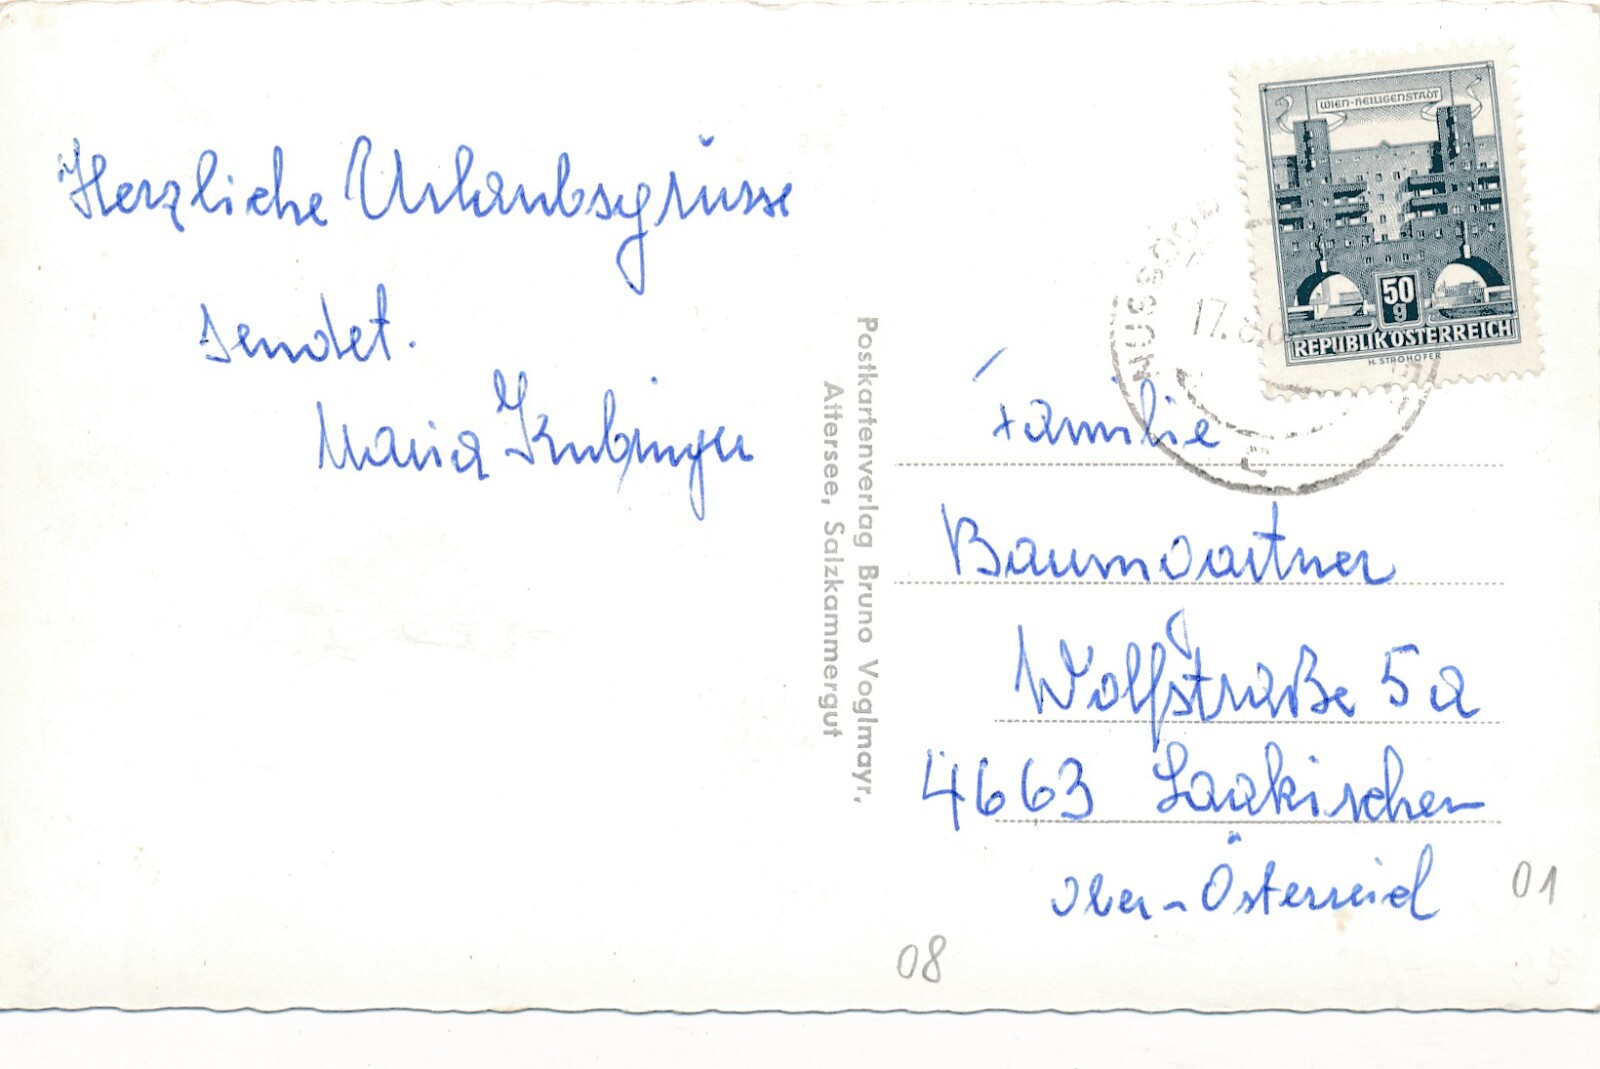 Herzliche Urlaubsgrüsse
sendet.
Maria
Postkartenverlag Bruno Voglmayr,
Attersee, Salzkammergut
WIEN-HEILIGENSTADT
50
g
REPUBLIK ÖSTERREICH
H. STROHOFER
NUSSDORF
17. 8. 6
Familie
Baumgartner
Wolfstraße 5a
4663 Laakirchen
Ober-Österreich
01
08